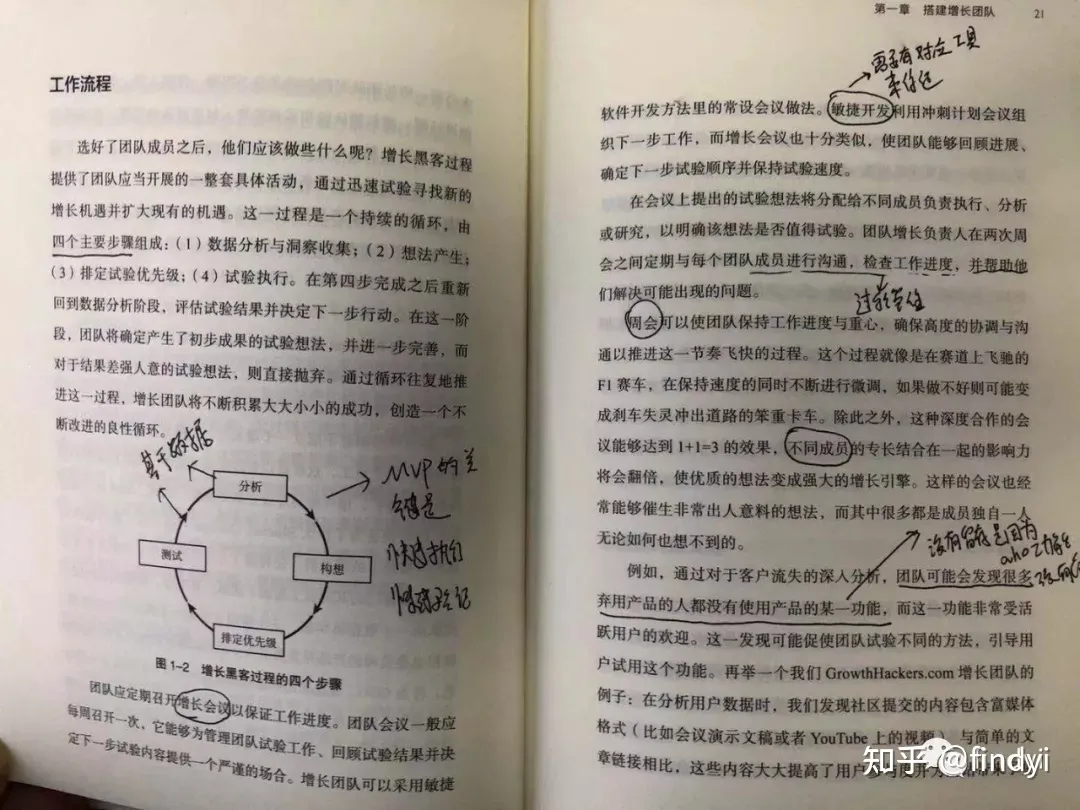 工作流程
选好了团队成员之后，他们应该做些什么呢？增长黑客过程
提供了团队应当开展的一整套具体活动，通过迅速试验寻找新的
增长机遇并扩大现有的机遇。这一过程是一个持续的循环，由
四个主要步骤组成：（1）数据分析与洞察收集；（2）想法产生；
（3）排定试验优先级；（4）试验执行。在第四步完成之后重新
回到数据分析阶段，评估试验结果并决定下一步行动。在这一阶
段，团队将确定产生了初步成果的试验想法，并进一步完善，而
对于结果差强人意的试验想法，则直接抛弃。通过循环往复地推
进这一过程，增长团队将不断积累大大小小的成功，创造一个不
断改进的良性循环。
基于数据
分析
构想
排定优先级
测试
MVP的关
键是
快速执行
快速验证
图1-2 增长黑客过程的四个步骤
团队应定期召开增长会议以保证工作进度。团队会议一般应
每周召开一次，它能够为管理团队试验工作、回顾试验结果并决
定下一步试验内容提供一个严谨的场合。增长团队可以采用敏捷
第一章 搭建增长团队 21
需要有对应工具
软件开发方法里的常设会议做法。敏捷开发利用冲刺计划会议组
织下一步工作，而增长会议也十分类似，使团队能够回顾进展、
确定下一步试验顺序并保持试验速度。
在会议上提出的试验想法将分配给不同成员负责执行、分析
或研究，以明确该想法是否值得试验。团队增长负责人在两次周
会之间定期与每个团队成员进行沟通，检查工作进度，并帮助他
们解决可能出现的问题。
周会可以使团队保持工作进度与重心，确保高度的协调与沟
通以推进这一节奏飞快的过程。这个过程就像是在赛道上飞驰的
F1赛车，在保持速度的同时不断进行微调，如果做不好则可能变
成刹车失灵冲出道路的笨重卡车。除此之外，这种深度合作的会
议能够达到1+1=3的效果，不同成员的专长结合在一起的影响力
将会翻倍，使优质的想法变成强大的增长引擎。这样的会议也经
常能够催生非常出人意料的想法，而其中很多都是成员独自一人
无论如何也想不到的。
没有留存是因为
例如，通过对于客户流失的深入分析，团队可能会发现很多
弃用产品的人都没有使用产品的某一功能，而这一功能非常受活
跃用户的欢迎。这一发现可能促使团队试验不同的方法，引导用
户试用这个功能。再举一个我们GrowthHackers.com增长团队的
例子：在分析用户数据时，我们发现社区提交的内容包含富媒体
格式（比如会议演示文稿或者YouTube上的视频），与简单的文
章链接相比，这些内容大大提高了用户
知乎 @findyi